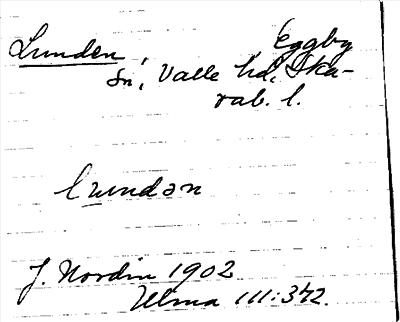 Lunden, Eggby
sn, Valle hd, Ska-
rab. l.
lundan
J. Nordin 1902
Ulma 111:372.